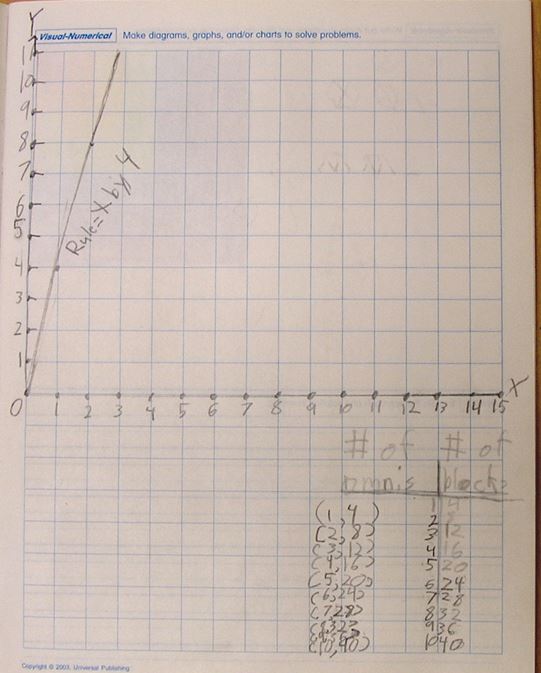 Y
Visual-Numerical Make diagrams, graphs, and/or charts to solve problems.
11
10
9
8
7
6
5
4
3
2
1
Rule=X by 4
0 1 2 3 4 5 6 7 8 9 10 11 12 13 14 15 X
# of # of
omnis blocks
(1,4) 1 4
(2,8) 2 8
(3,12) 3 12
(4,16) 4 16
(5,20) 5 20
(6,24) 6 24
(7,28) 7 28
(8,32) 8 32
9 36
(10,40) 10 40
Copyright © 2003, Universal Publishing